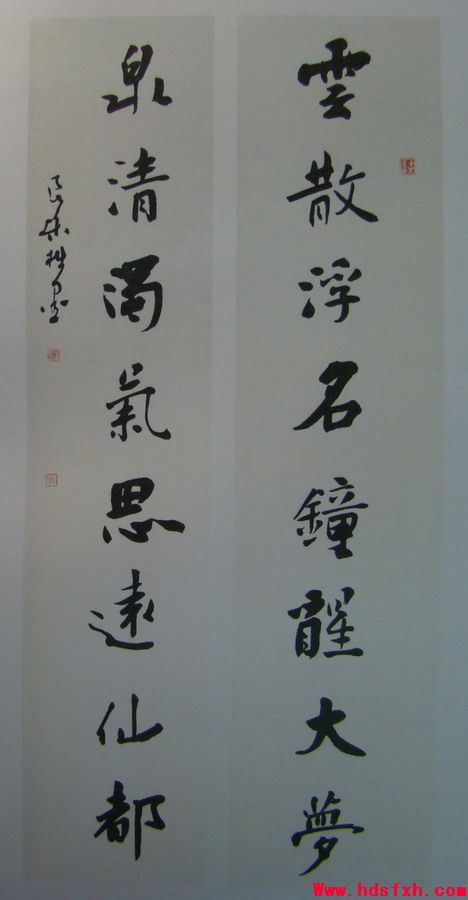 雲散浮名鐘醒大夢
泉清濁氣思遠仙都
Www.hdsfxh.com